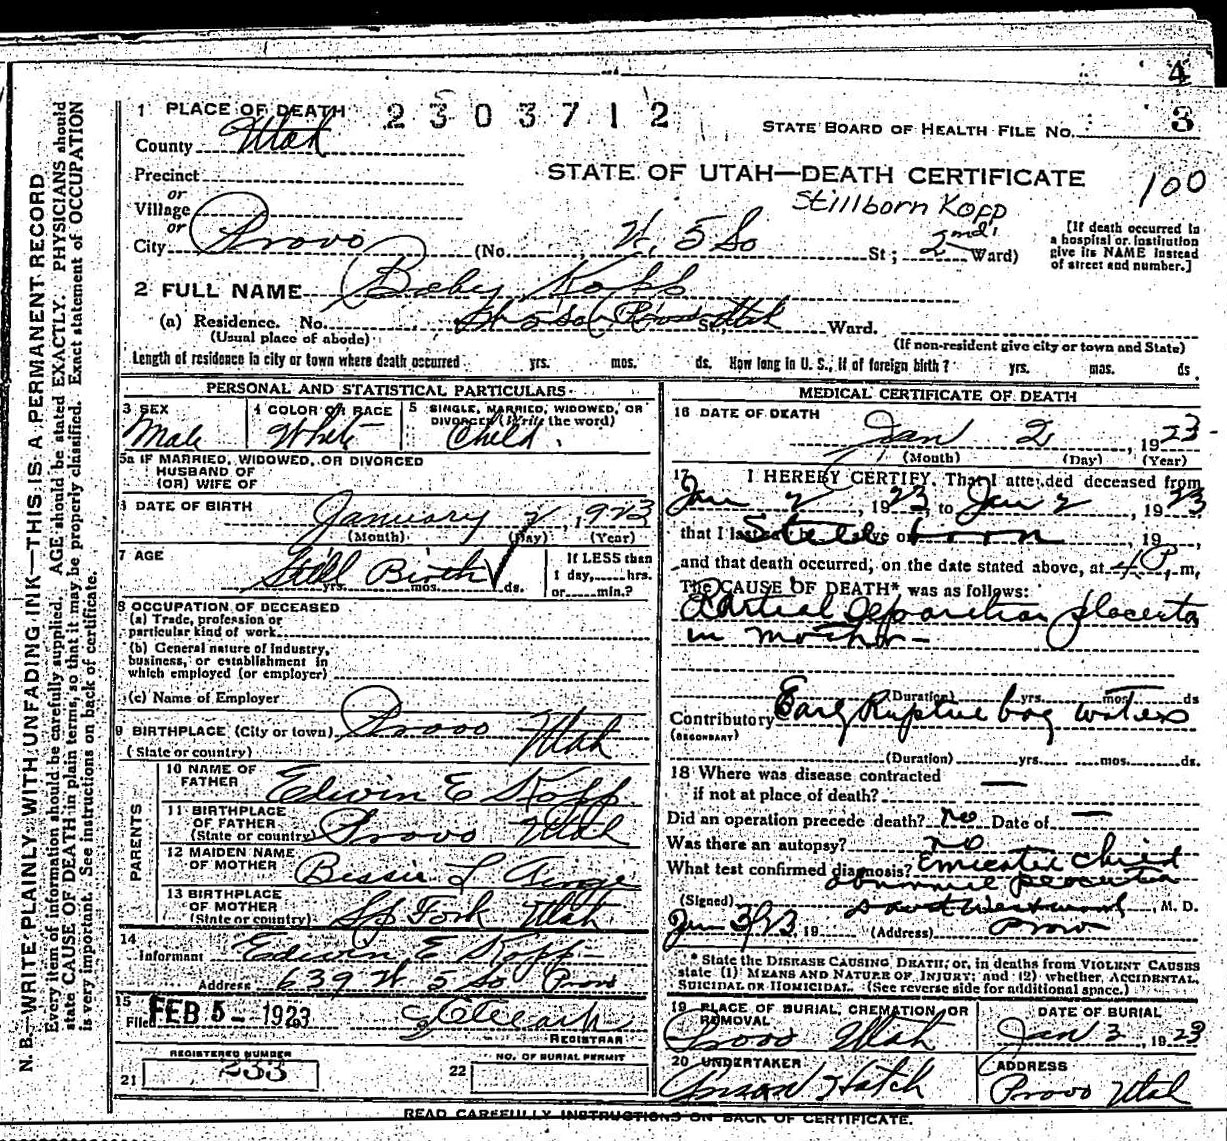 4
3
1 PLACE OF DEATH 2303712
STATE BOARD OF HEALTH FILE No.
County Utah
STATE OF UTAH—DEATH CERTIFICATE 100
Precinct
or
Village
Stillborn Kopp
or
City Provo (No. W. 5 So St; 2nd Ward)
[If death occurred in
a hospital or institution
give its NAME instead
of street and number.]
2 FULL NAME Baby Kopp
(a) Residence. No. Provo Utah St., Ward.
(Usual place of abode) (If non-resident give city or town and State)
Length of residence in city or town where death occurred yrs. mos. ds. How long in U. S., if of foreign birth? yrs. mos. ds.
PERSONAL AND STATISTICAL PARTICULARS
3 SEX 4 COLOR OR RACE 5 SINGLE, MARRIED, WIDOWED, OR
DIVORCED (Write the word)
Male White Child.
5a IF MARRIED, WIDOWED, OR DIVORCED
HUSBAND OF
(OR) WIFE OF
DATE OF BIRTH January 2, 1923
(Month) (Day) (Year)
7 AGE Still Birth
yrs. mos. ds.
If LESS than
1 day, hrs.
or min.?
8 OCCUPATION OF DECEASED
(a) Trade, profession or
particular kind of work
(b) General nature of industry,
business, or establishment in
which employed (or employer)
(c) Name of Employer
9 BIRTHPLACE (City or town) Provo
(State or country) Utah
PARENTS
10 NAME OF
FATHER Edwin E Kopp
11 BIRTHPLACE
OF FATHER
(State or country) Provo Utah
12 MAIDEN NAME
OF MOTHER Bessie L
13 BIRTHPLACE
OF MOTHER
(State or country) Sp Fork Utah
14
Informant Edwin E Kopp
Address 639 W. 5 So Provo
15
Filed FEB 5 - 1923
REGISTRAR
REGISTERED NUMBER NO. OF BURIAL PERMIT
21 233 22
MEDICAL CERTIFICATE OF DEATH
16 DATE OF DEATH
Jan 2, 1923
(Month) (Day) (Year)
17 I HEREBY CERTIFY, That I attended deceased from
Jan 2, 1923, to Jan 2, 1923
that I last saw alive on Still born, 19
and that death occurred, on the date stated above, at 4 P. m,
The CAUSE OF DEATH* was as follows:
Partial separation placenta
in mother
(Duration) yrs. mos. ds
Contributory Early Rupture bag waters
(SECONDARY)
(Duration) yrs. mos. ds.
18 Where was disease contracted
if not at place of death? —
Did an operation precede death? no Date of —
Was there an autopsy? no
What test confirmed diagnosis? child
placenta
(Signed) Westwood, M. D.
Jan 3/23, 19 (Address) Provo
* State the DISEASE CAUSING DEATH; or, in deaths from VIOLENT CAUSES
state (1) MEANS AND NATURE OF INJURY; and (2) whether ACCIDENTAL,
SUICIDAL OR HOMICIDAL. (See reverse side for additional space.)
19 PLACE OF BURIAL, CREMATION, OR
REMOVAL DATE OF BURIAL
Provo Utah Jan 3, 1923
20 UNDERTAKER ADDRESS
Hatch Provo Utah
READ CAREFULLY INSTRUCTIONS ON BACK OF CERTIFICATE.
N. B.—WRITE PLAINLY WITH UNFADING INK—THIS IS A PERMANENT RECORD
Every item of information should be carefully supplied. AGE should be stated EXACTLY. PHYSICIANS should
state CAUSE OF DEATH in plain terms, so that it may be properly classified. Exact statement of OCCUPATION
is very important. See instructions on back of certificate.